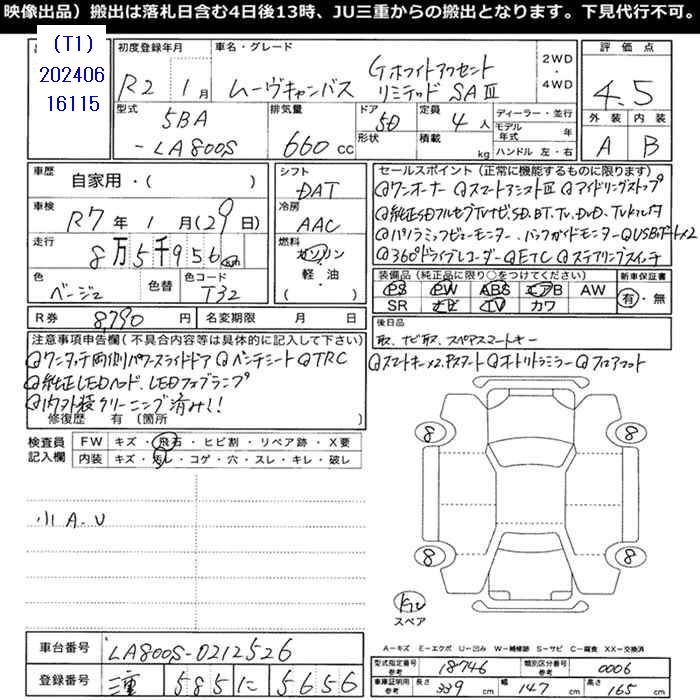 映像出品）搬出は落札日含む4日後13時、JU三重からの搬出となります。下見代行不可。
(T1)
202406
16115
初度登録年月 R2年 1月
車名・グレード ムーヴキャンバス Gホワイトアクセント リミテッド SAⅢ
2WD・4WD
評価点 4.5
外装 内装
A B
型式 5BA-LA800S
排気量 660cc
ドア 5D
形状
定員 4人
積載 kg
ディーラー・並行
モデル年式 年
ハンドル 左・右
車歴 自家用・( )
車検 R7年1月(29日)
走行 8万5千956km
色 ベージュ 色替 色コード T32
シフト DAT
冷房 AAC
燃料 ガソリン・軽・油 ( )
R券 8,790円 名変期限 月 日
セールスポイント（正常に機能するものに限ります）
◎ワンオーナー ◎スマートアシストⅢ ◎アイドリングストップ
◎純正SDフルセグTVナビ、SD、BT、TV、DVD、TVキャンセラ付
◎パノラミックビューモニター、バックガイドモニター ◎USBポート×2
◎360°ドライブレコーダー ◎ETC ◎ステアリングスイッチ
装備品（純正品に限り○をつけてください）
PS PW ABS エアB AW
SR ナビ TV カワ
新車保証書 有・無
後日品
取、ナビ取、スペアスマートキー
注意事項申告欄（不具合内容等は具体的に記入して下さい）
◎ワンタッチ両側パワースライドドア ◎ベンチシート ◎TRC
◎スマートキー×2、Pスタート ◎オートリトラミラー ◎フロアマット
◎純正LEDヘッド、LEDフォグランプ
◎内外装クリーニング済み!!
修復歴 有 （箇所 ）
検査員記入欄
FW キズ・飛石・ヒビ割・リペア跡・X要
内装 キズ・汚レ・コゲ・穴・スレ・キレ・破レ
小A、U
8 8
8 8
スペア
A＝キズ E＝エクボ U＝凹み W＝補修跡 S＝サビ C＝腐食 XX＝交換済
車台番号 LA800S-0212526
登録番号 三重 585 に 5656
型式指定番号 参考 18746 類別区分番号 参考 0006
車庫証明用 参考 長さ 339 cm 幅 147 cm 高さ 165 cm